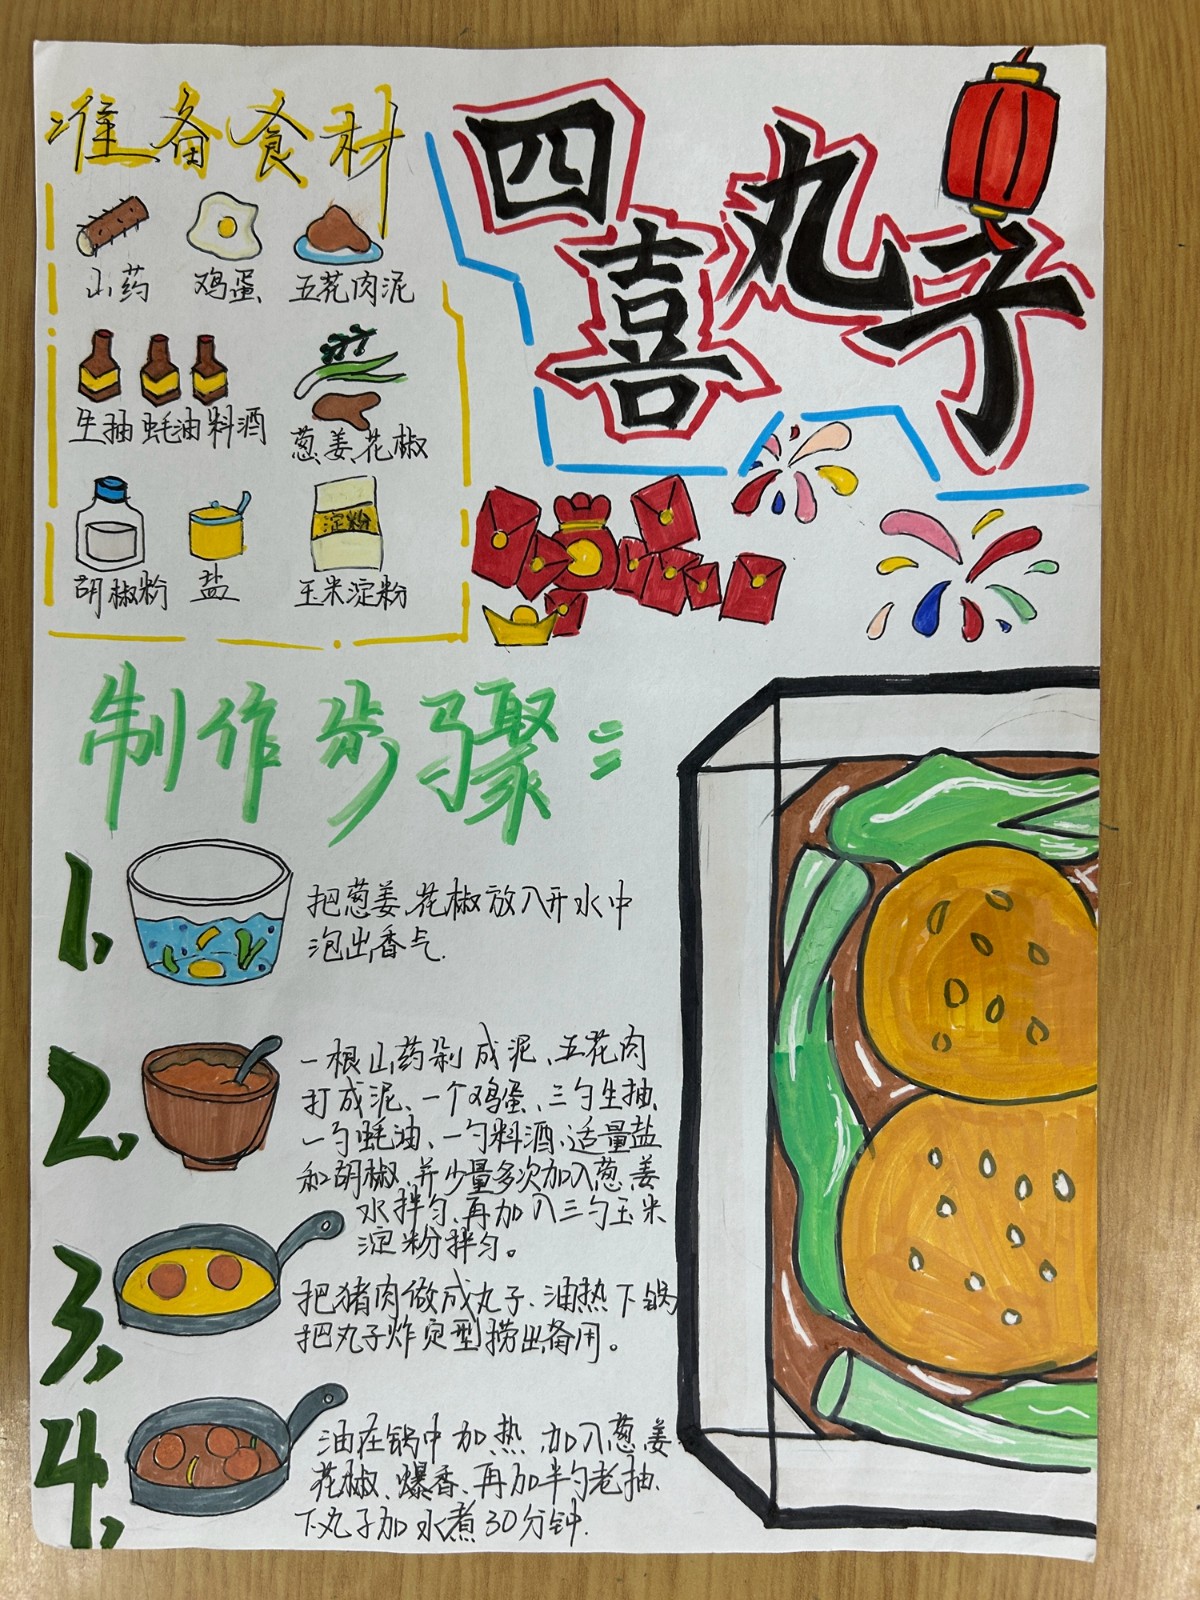 准备食材
四喜丸子
山药 鸡蛋 五花肉泥
生抽 蚝油 料酒 葱、姜、花椒
淀粉
胡椒粉 盐 玉米淀粉
制作步骤：
1、
把葱姜、花椒放入开水中
泡出香气.
2、
一根山药剁成泥、五花肉
打成泥、一个鸡蛋、三勺生抽、
一勺蚝油、一勺料酒、适量盐
和胡椒、并少量多次加入葱、姜
水拌匀、再加入三勺玉米
淀粉拌匀。
3、
把猪肉做成丸子、油热下锅
把丸子炸定型捞出备用。
4、
油在锅中加热、加入葱、姜
花椒、爆香、再加半勺老抽、
下丸子加水煮30分钟.